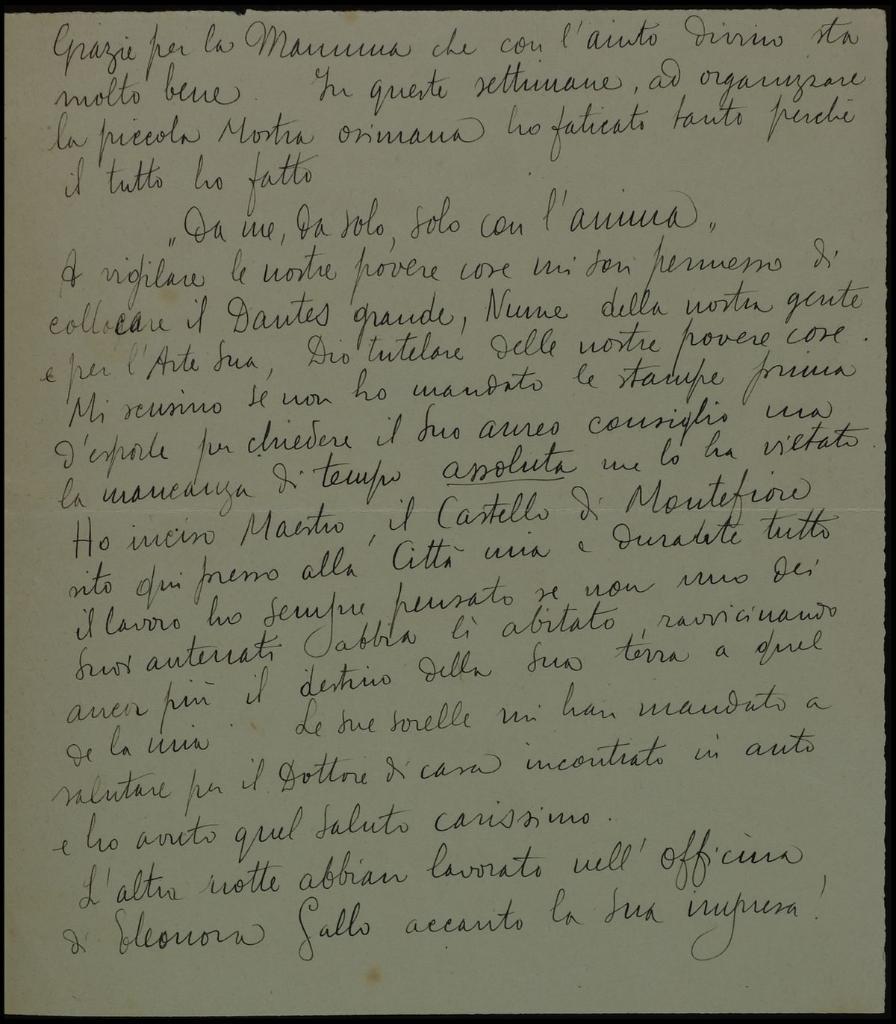 Grazie per la Mamma che con l'aiuto divino sta
molto bene. In queste settimane, ad organizzare
la piccola Mostra osimana ho faticato tanto perchè
il tutto ho fatto
„Da me, da solo, solo con l'anima„
A vigilare le nostre povere cose mi son permesso di
collocare il Dantes grande, Nume della nostra gente
e per l'Arte Sua, Dio tutelare delle nostre povere cose.
Mi scusino se non ho mandato le stampe prima
d'esporle per chiedere il Suo aureo consiglio ma
la mancanza di tempo assoluta me lo ha vietato.
Ho inciso Maestro, il Castello di Montefiore
sito qui presso alla Città mia e durante tutto
il lavoro ho sempre pensato se non uno dei
Suoi antenati abbia lì abitato, ravvicinando
ancor più il destino della Sua terra a quel
de la mia. Le sue sorelle mi han mandato a
salutare per il Dottore di casa incontrato in auto
e ho avuto quel saluto carissimo.
L'altra notte abbiam lavorato nell'officina
di Eleonora Gallo accanto la Sua impresa!